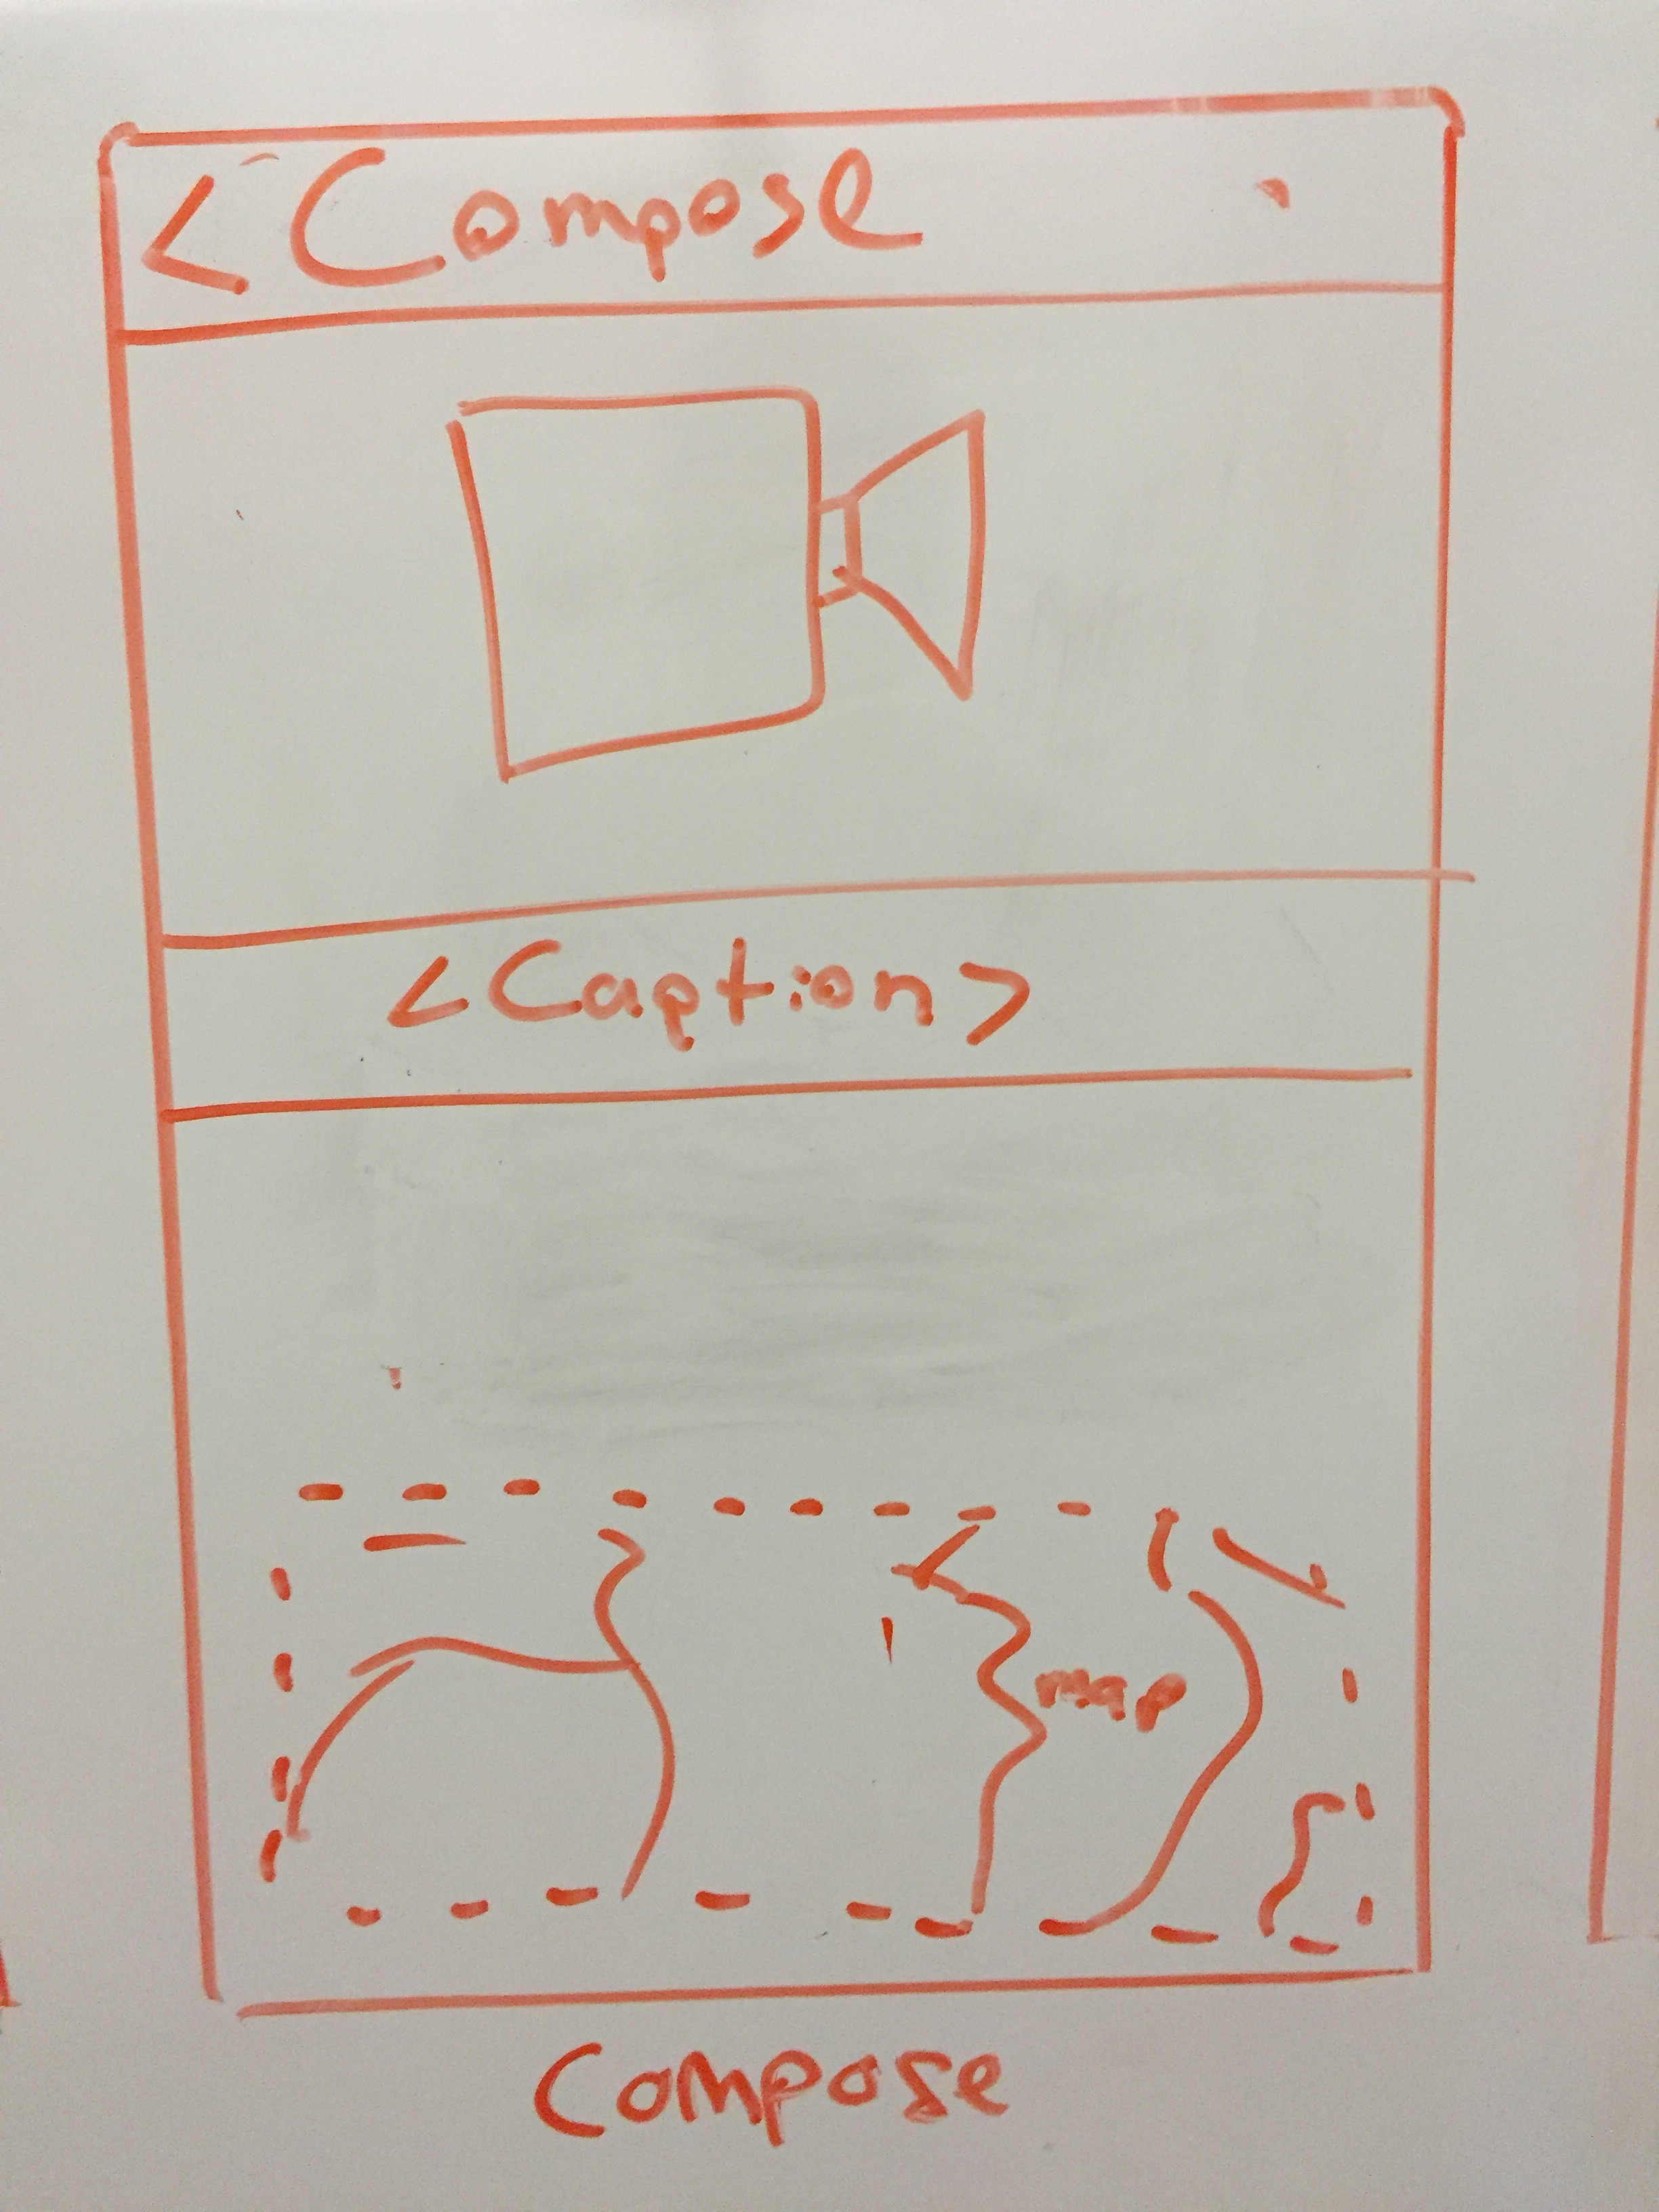 < Compose
<Caption>
map
Compose